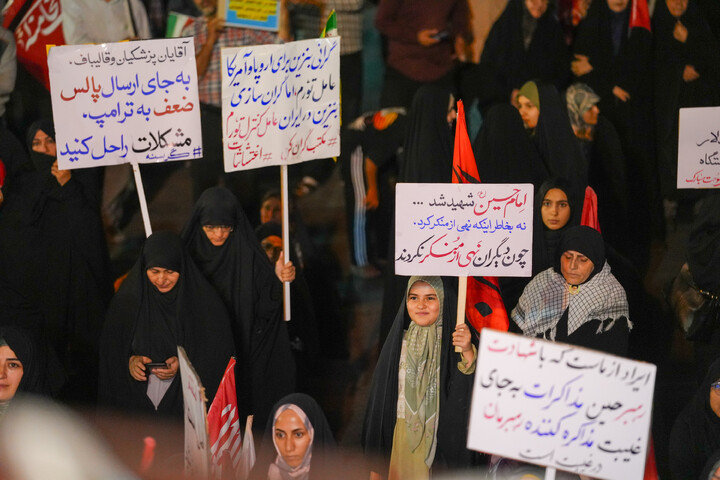 آقایان پزشکیان و قالیباف
به جای ارسال پالس
ضعف به ترامپ،
مشکلات را حل کنید
گرانی بنزین برای اروپا و آمریکا
عامل تورم، اما گران سازی
بنزین در ایران عامل کنترل تورم
مکتب گران کن
اغتشاشات
امام حسین (ع) شهید شد ...
نه بخاطر اینکه نهی از منکر کرد.
چون دیگران نهی از منکر نکردند
ایراد از ماست که با شهادت
رهبر حین مذاکرات به جای
غیبت مذاکره کننده رهبرمان
در غیبت است